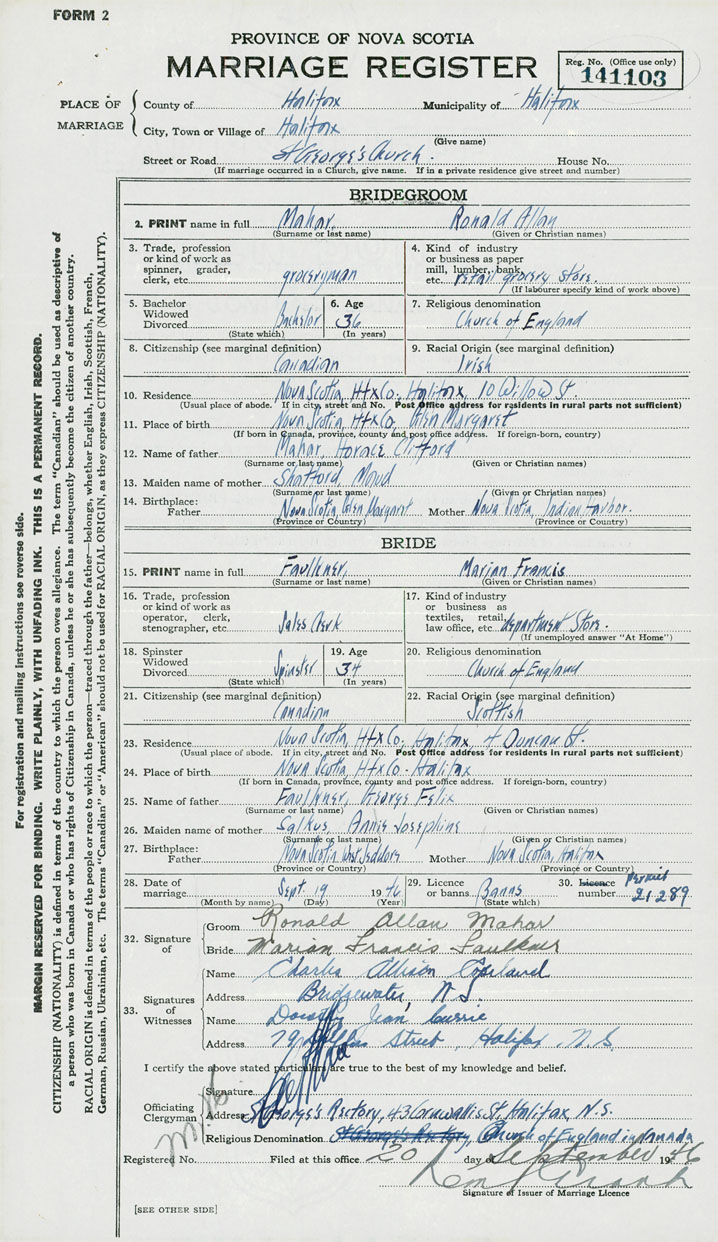 FORM 2
PROVINCE OF NOVA SCOTIA
MARRIAGE REGISTER
Reg. No. (Office use only)
141103
PLACE OF MARRIAGE
County of Halifax Municipality of Halifax
City, Town or Village of Halifax
(Give name)
Street or Road St George's Church. House No.
(If marriage occurred in a Church, give name. If in a private residence give street and number)
BRIDEGROOM
2. PRINT name in full Mahar, Ronald Allan
(Surname or last name) (Given or Christian names)
3. Trade, profession or kind of work as spinner, grader, clerk, etc. groceryman
4. Kind of industry or business as paper mill, lumber, bank, etc. retail grocery store.
(If labourer specify kind of work above)
5. Bachelor Widowed Divorced Bachelor
(State which)
6. Age 36
(In years)
7. Religious denomination
Church of England
8. Citizenship (see marginal definition)
Canadian
9. Racial Origin (see marginal definition)
Irish
10. Residence Nova Scotia, Hfx Co, Halifax, 10 Willow St.
(Usual place of abode. If in city, street and No. Post Office address for residents in rural parts not sufficient)
11. Place of birth Nova Scotia, Hfx Co, Glen Margaret
(If born in Canada, province, county and post office address. If foreign-born, country)
12. Name of father Mahar, Horace Clifford
(Surname or last name) (Given or Christian names)
13. Maiden name of mother Shatford, Maud
(Surname or last name) (Given or Christian names)
14. Birthplace: Father Nova Scotia, Glen Margaret Mother Nova Scotia, Indian Harbor.
(Province or Country) (Province or Country)
BRIDE
15. PRINT name in full Faulkner, Marian Francis
(Surname or last name) (Given or Christian names)
16. Trade, profession or kind of work as operator, clerk, stenographer, etc. Sales Clerk
17. Kind of industry or business as textiles, retail, law office, etc. department Store.
(If unemployed answer "At Home")
18. Spinster Widowed Divorced Spinster
(State which)
19. Age 34
(In years)
20. Religious denomination
Church of England
21. Citizenship (see marginal definition)
Canadian
22. Racial Origin (see marginal definition)
Scottish
23. Residence Nova Scotia, Hfx Co, Halifax, 4 Duncan St.
(Usual place of abode. If in city, street and No. Post Office address for residents in rural parts not sufficient)
24. Place of birth Nova Scotia, Hfx Co. Halifax
(If born in Canada, province, county and post office address. If foreign-born, country)
25. Name of father Faulkner, George Felix
(Surname or last name) (Given or Christian names)
26. Maiden name of mother Salkus, Annie Josephine
(Surname or last name) (Given or Christian names)
27. Birthplace: Father Nova Scotia West Jeddore Mother Nova Scotia, Halifax
(Province or Country) (Province or Country)
28. Date of marriage Sept. 19 1946
(Month by name) (Day) (Year)
29. Licence or banns Banns
(State which)
30. Licence number Permit 21289
32. Signature of
Groom Ronald Allan Mahar
Bride Marian Francis Faulkner
33. Signatures of Witnesses
Name Charles Allison Copeland
Address Bridgewater, N.S.
Name Dorothy Jean Currie
Address 79 Street, Halifax N.S.
I certify the above stated particulars are true to the best of my knowledge and belief.
Officiating Clergyman
Signature
Address St George's Rectory, 43 Cornwallis St, Halifax, N.S.
Religious Denomination St George's Rectory, Church of England in Canada
Registered No. Filed at this office 20 day of September 1946
Signature of Issuer of Marriage Licence
[SEE OTHER SIDE]
For registration and mailing instructions see reverse side.
MARGIN RESERVED FOR BINDING. WRITE PLAINLY, WITH UNFADING INK. THIS IS A PERMANENT RECORD.
CITIZENSHIP (NATIONALITY) is defined in terms of the country to which the person owes allegiance. The term "Canadian" should be used as descriptive of
a person who was born in Canada or who has rights of Citizenship in Canada, unless he or she has subsequently become the citizen of another country.
RACIAL ORIGIN is defined in terms of the people or race to which the person—traced through the father—belongs, whether English, Irish, Scottish, French,
German, Russian, Ukrainian, etc. The terms "Canadian" or "American" should not be used for RACIAL ORIGIN, as they express CITIZENSHIP (NATIONALITY).